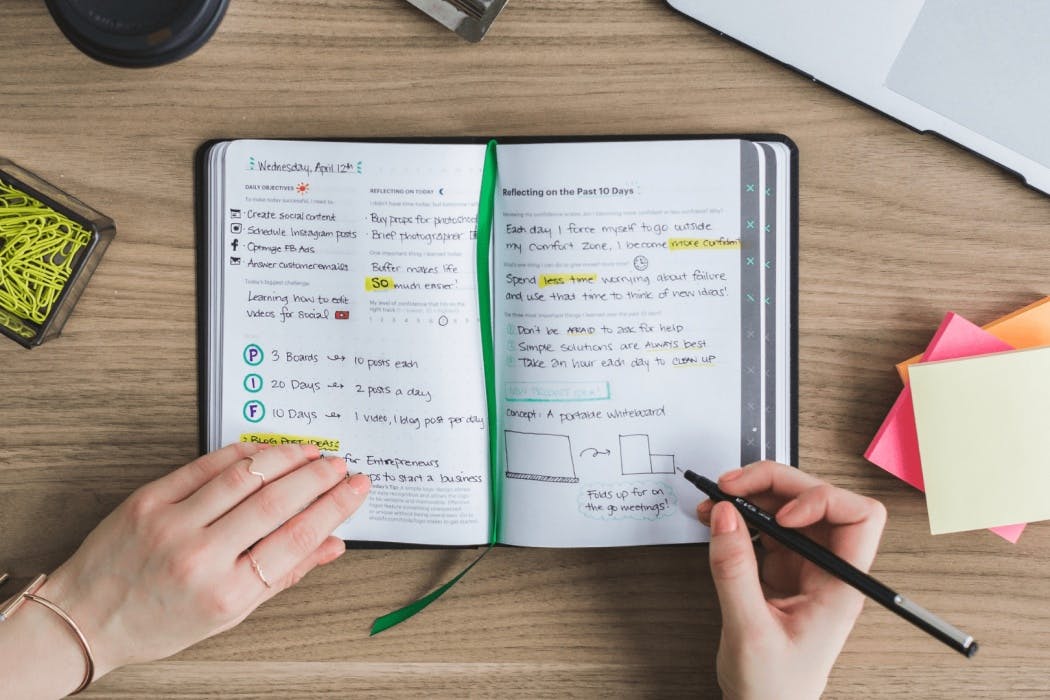 Wednesday, April 12th
DAILY OBJECTIVES
To make today successful, I need to:
Create social content
Schedule Instagram posts
Optimize FB Ads
Answer customer emails
Today's biggest challenge:
Learning how to edit
videos for social
P 3 Boards → 10 posts each
I 20 Days → 2 posts a day
F 10 Days → 1 video, 1 blog post per day
BLOG POST IDEAS:
for Entrepreneurs
to start a business
REFLECTING ON TODAY
I didn't have time today, but tomorrow I will
· Buy props for photoshoot
· Brief photographer
One important thing I learned today:
Buffer makes life
SO much easier!
My level of confidence that I'm on the
right track
1 2 3 4 5 6 7 8 9
Today's Tip: A simple logo design allows
for easy recognition and allows the logo
to be versatile and memorable. Effective
logos feature something unexpected
or unique without being overdrawn. Go to
shopify.com/tools/logo-maker to get started.
Reflecting on the Past 10 Days
Reviewing my confidence scores, am I becoming more confident or less confident? Why?
Each day I force myself to go outside
my comfort zone, I become more confident
What's one thing I can do to give more? Save time?
Spend less time worrying about failure
and use that time to think of new ideas!
The three most important things I learned over the past 10 days?
1 Don't be AFRAID to ask for help
2 Simple solutions are ALWAYS best
3 Take an hour each day to CLEAN UP
NEW PRODUCT IDEA!
Concept: A portable whiteboard
Folds up for on
the go meetings!